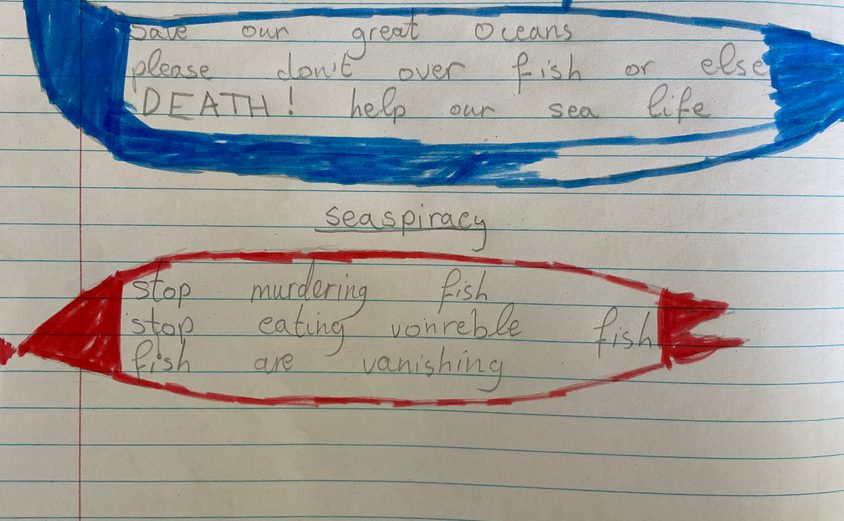 Save our great oceans
please don't over fish or else
DEATH! help our sea life
seaspiracy
stop murdering fish
stop eating vonreble fish
fish are vanishing